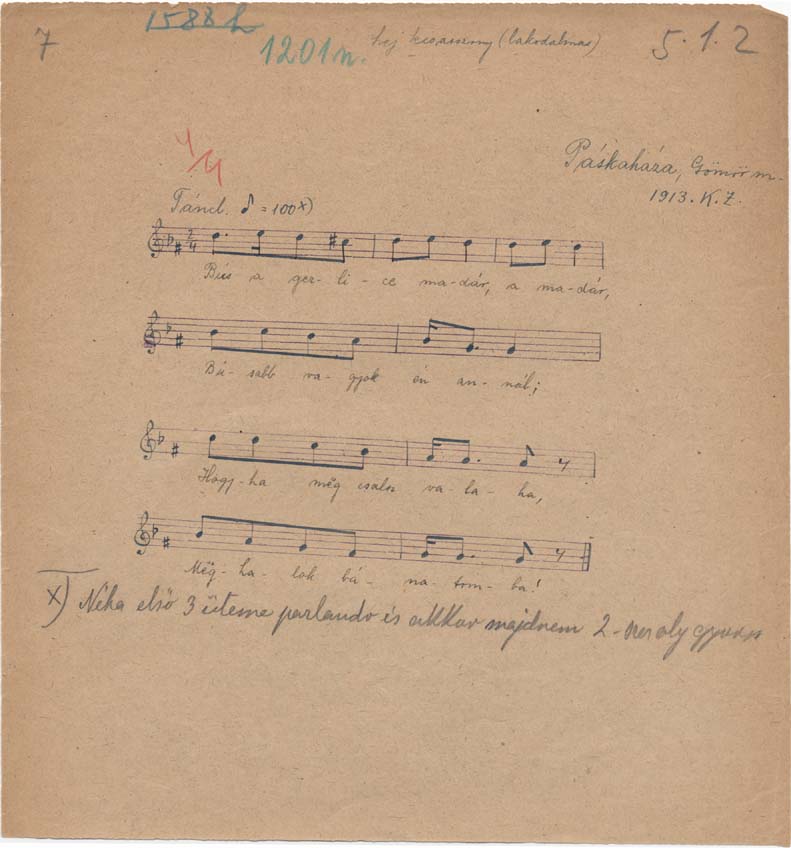 7
1588 h
1201 n.
hej kisasszony (lakodalmas)
5.1.2
4/4
Páskaháza, Gömör m.
1913. K. Z.
Táncl. ♪ = 100 x)
2/4
Bús a ger-li-ce ma-dár, a ma-dár,
Bú-sabb va-gyok én an-nál;
Hogy-ha még csalsz va-la-ha,
Még-ha-lok bá-na-tom-ba!
x) Néha első 3 üteme parlando és akkor majdnem 2-